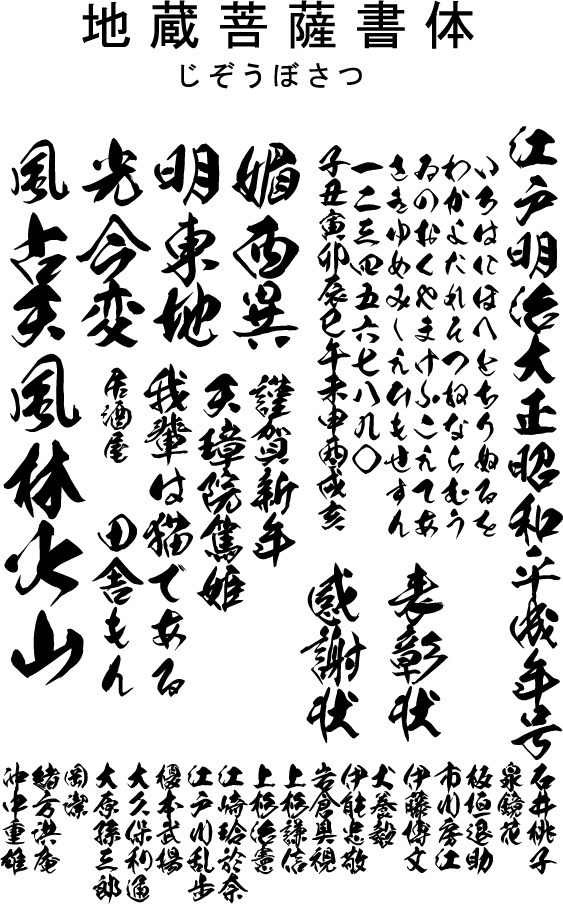 地蔵菩薩書体
じぞうぼさつ
江戸明治大正昭和平成年号
いろはにほへとちりぬるを
わかよたれそつねならむう
ゐのおくやまけふこえてあ
さきゆめみしゑひもせすん
一二三四五六七八九〇
子丑寅卯辰巳午未申酉戌亥
表彰状
感謝状
媚西巽
明東地
光今変
風占天
謹賀新年
天璋院篤姫
我輩は猫である
居酒屋
田舎もん
風林火山
石井桃子
泉鏡花
板垣退助
市川房江
伊藤博文
犬養毅
伊能忠敬
岩倉具視
上杉謙信
上杉治憲
江崎玲於奈
江戸川乱歩
榎本武揚
大久保利通
大原孫三郎
岡潔
緒方洪庵
沖中重雄